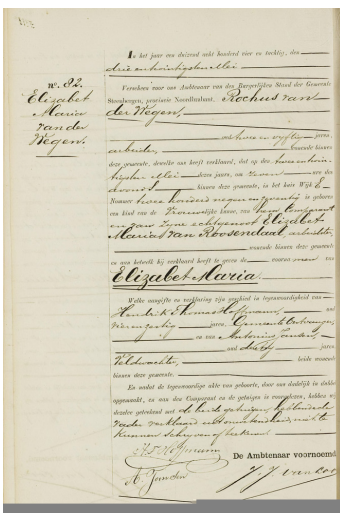 In het jaar een duizend acht honderd vier en tachtig, den
drie en twintigsten Mei
Verscheen voor ons Ambtenaar van den Burgerlijken Stand der Gemeente
Steenbergen, provincie Noordbrabant, Rochus van
der Wegen,
oud twee en vijftig jaren,
arbeider, binnen
deze gemeente, dewelke ons heeft verklaard, dat op den twee en twin-
tigsten Mei dezes jaars, om zeven ure des
avonds binnen deze gemeente, in het huis Wijk E
Nommer twee honderd negen en geboren
een kind van de Vrouwelijke kunne, van hem Comparant
en van zijne echtgenoot Elizabet
Maria van Roosendaal, arbeidster,
wonende binnen deze gemeente
en aan hetwelk hij verklaard heeft te geven de voornamen van
Elizabet Maria.
Welke aangifte en verklaring zijn geschied in tegenwoordigheid van
Hendrik Thomas Hoffmann, oud
vier en veertig jaren, Gemeente Ontvanger,
en van Antonius Jansen,
oud dertig jaren
Veldwachter, beide wonende
binnen deze gemeente.
En is van de tegenwoordige akte van geboorte, door ons dadelijk in dubbel
opgemaakt, en aan den Comparant en de getuigen is voorgelezen, hebben wij
dezelve geteekend met de beide getuigen, hebbende
vader verklaard niet te
kunnen schrijven
H T Hoffmann
De Ambtenaar voornoemd
A. Jansen
No. 82.
Elizabet
Maria
van der
Wegen.